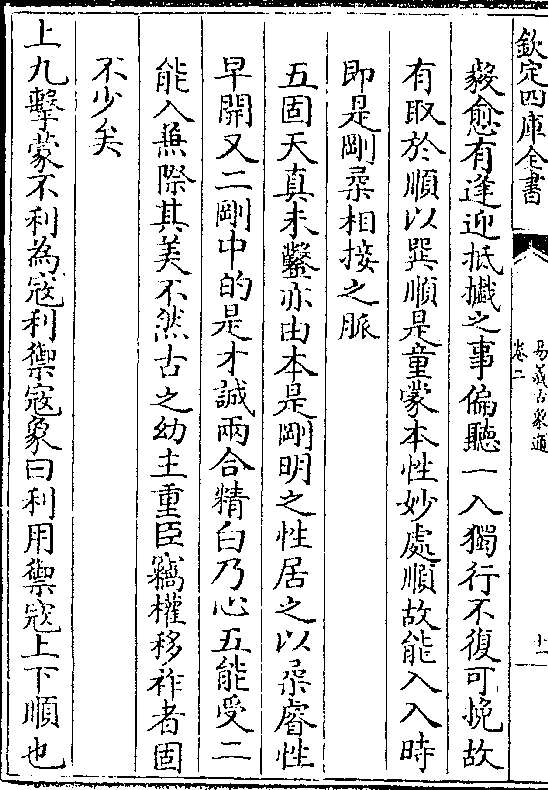 欽定四庫全書
易義古象通
卷二
十一
毅愈有逢迎抵巇之事偏聽一入獨行不復可挽故
有取於順以巽順是童蒙本性妙處順故能入入時
即是剛柔相接之脈
五固天真未鑿亦由本是剛明之性居之以柔睿性
早開又二剛中的是才誠兩合精白乃心五能受二
能入無際其美不然古之幼主重臣竊權移祚者固
不少矣
上九擊蒙不利為寇利禦寇象曰利用禦寇上下順也